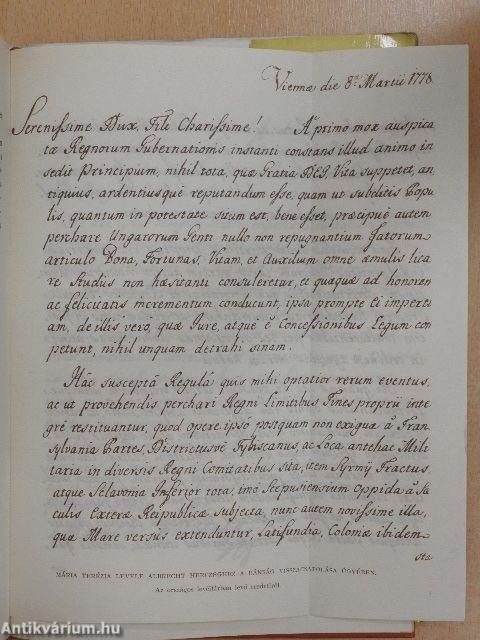 Viennæ die 8va Martii 1778
Serenissime Dux, Fili Charissime! A primo mox auspica
tæ Regnorum Gubernationis instanti constans illud animo in
sedit Principium, nihil tota, quæ Gratia DEI, Vita suppetet, an
tiquius, ardentiusquè reputandum esse, quam ut subditis Popu
lis, quantum in potestate situm est, bene esset, præcipuè autem
percharæ Ungarorum Genti nullo non repugnantium fatorum
articulo Bona, Fortunas, Vitam, et Auxilium omne æmulis lita
re Studiis non hæsitanti consuleretur, et quæquæ ad honorem
ac felicitatis incrementum conducunt, ipsa prompte Ei imperti
am, de illis vero, quæ Jure, atquè è Concessionibus Legum com
petunt, nihil unquam detrahi sinam.
Hâc susceptâ Regulâ quis mihi optatior rerum eventus,
ac ut provehendis perchari Regni Limitibus Fines proprii inte
gre restituantur, quod opere ipsô postquam non exigua à Tran
sylvania Partes, Districtusvè Tybiscanus, ac Loca antehac Mili
taria in diversis Regni Comitatibus sita, item Syrmÿ Tractus,
atque Sclavonia Inferior tota, imò Scepusiensium Oppida à Sæ
culis Exteræ Reipublicæ subjecta, nunc autem novissime illa,
quæ Mare versus extenduntur, Latifundia, Coloniæ ibidem
sta
MÁRIA TERÉZIA LEVELE ALBRECHT HERCZEGHEZ A BÁNSÁG VISSZACSATOLÁSA ÜGYÉBEN.
Az országos levéltárban levő eredetiről.
Antikvárium.hu